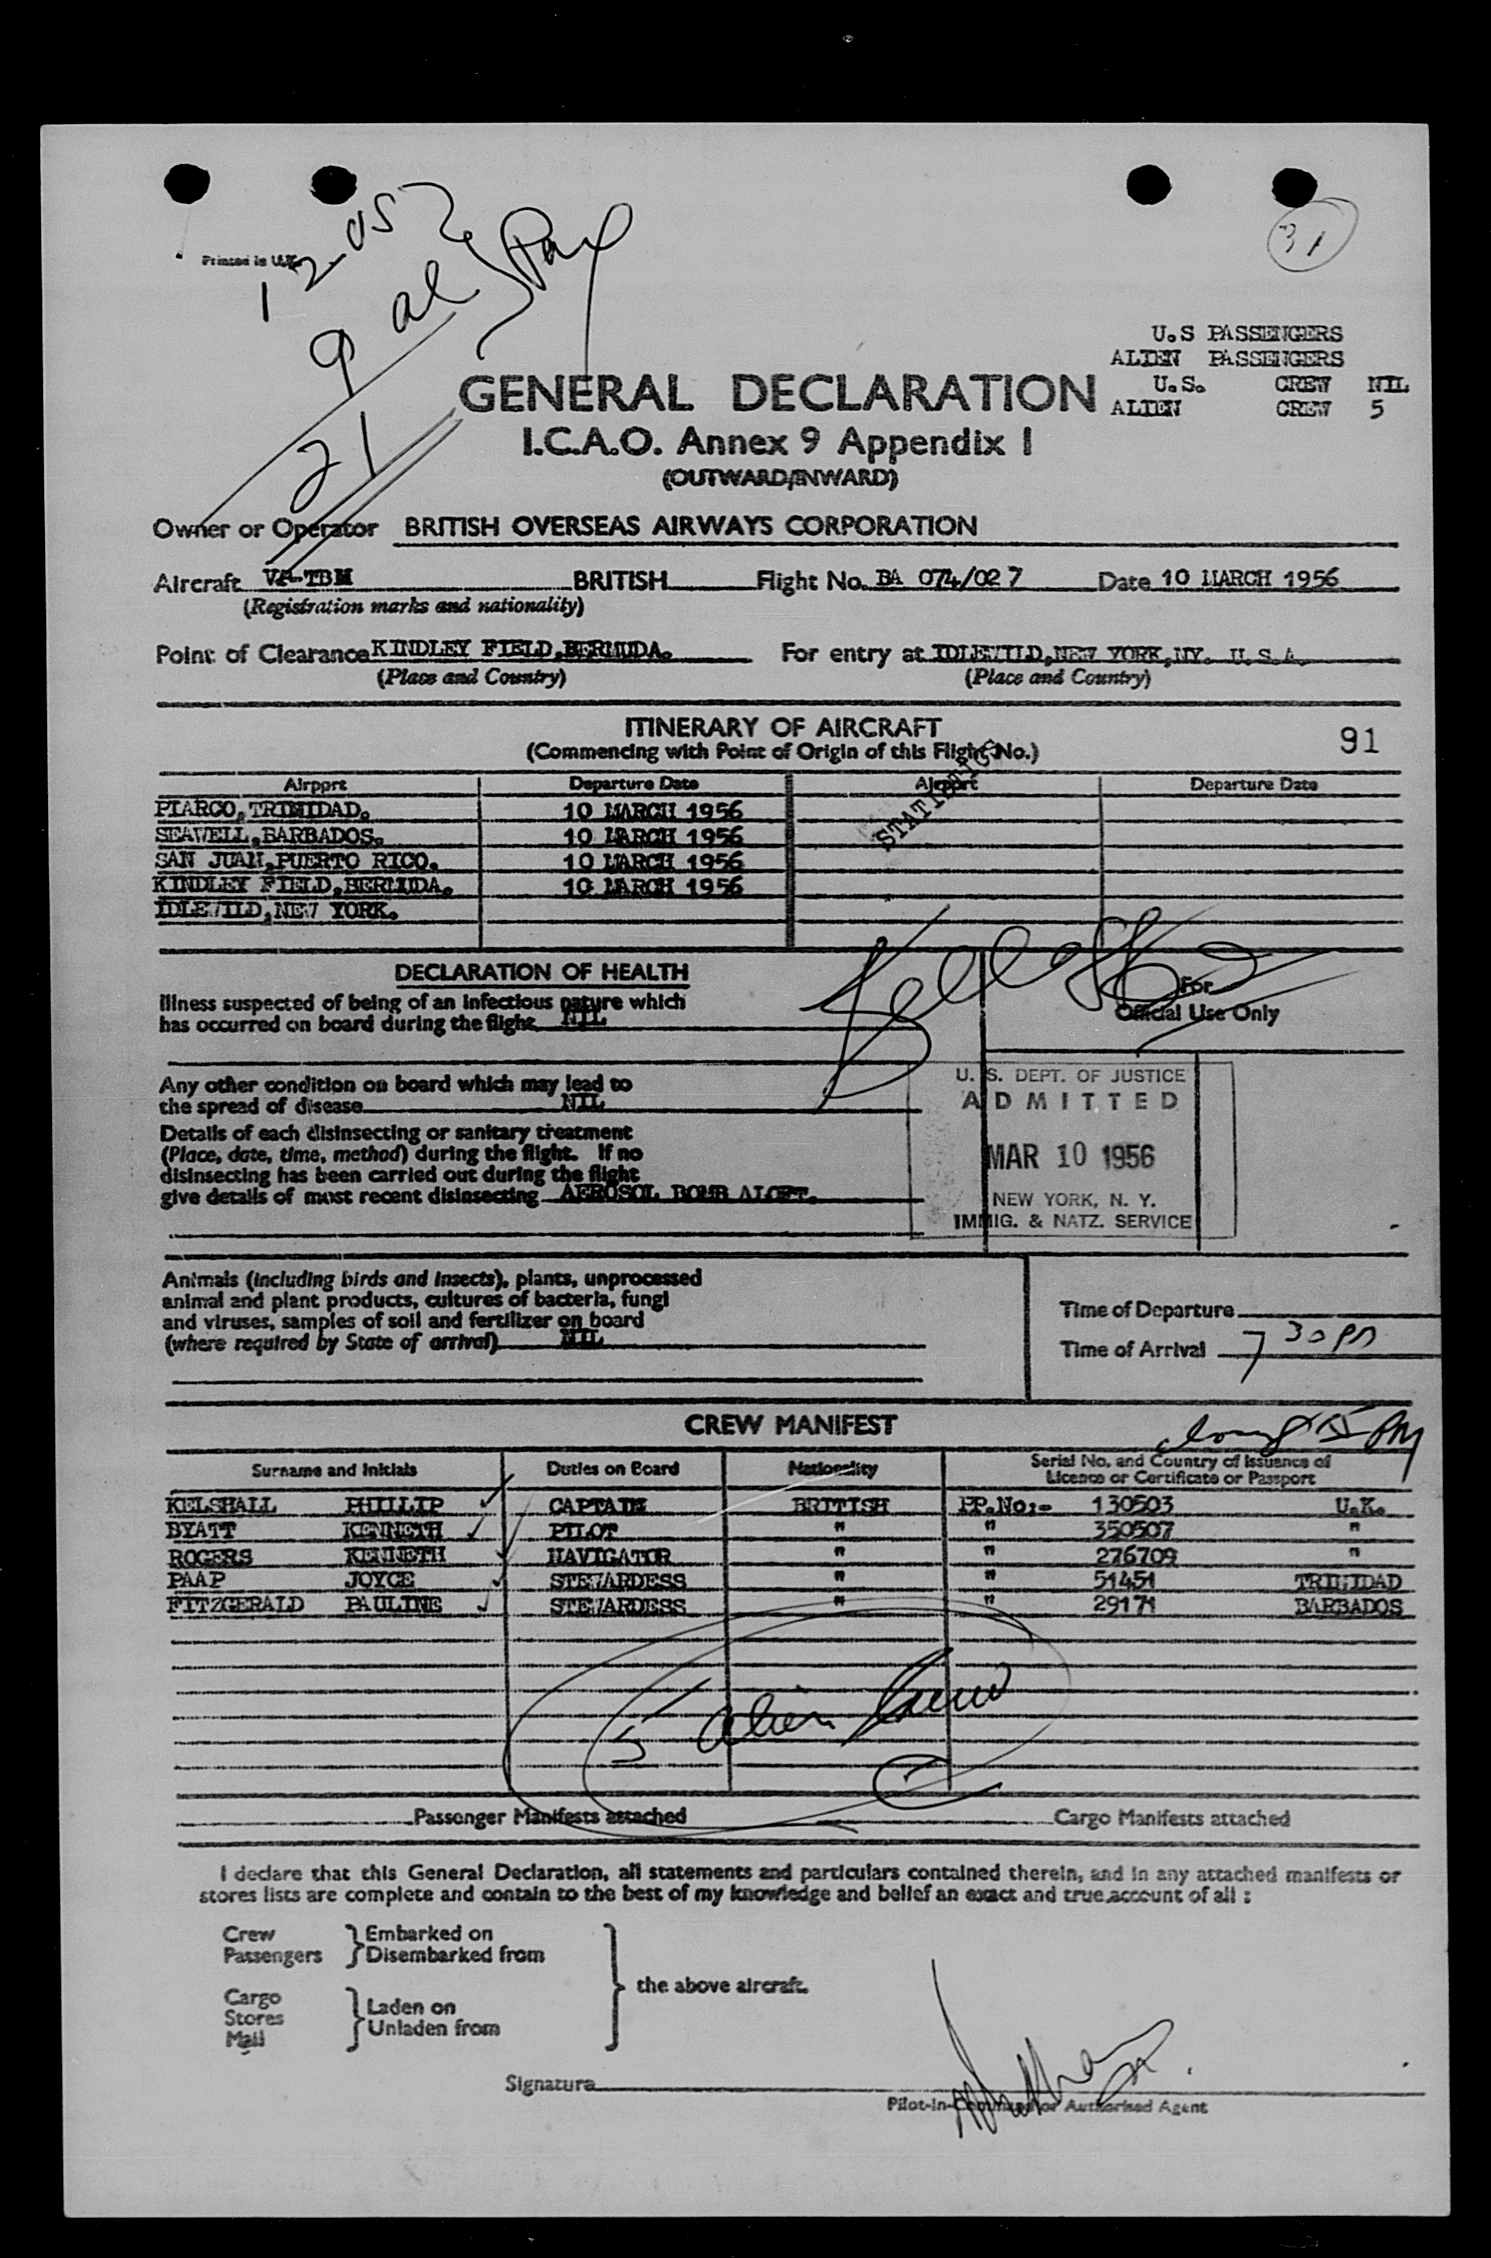 31
Printed in U.K.
U.S PASSENGERS
ALIEN PASSENGERS
U.S. CREW NIL
ALIEN CREW 5
GENERAL DECLARATION
I.C.A.O. Annex 9 Appendix I
(OUTWARD/INWARD)
Owner or Operator BRITISH OVERSEAS AIRWAYS CORPORATION
Aircraft VP-TBM BRITISH Flight No. BA 074/027 Date 10 MARCH 1956
(Registration marks and nationality)
Point of Clearance KINDLEY FIELD,BERMUDA. For entry at IDLEWILD,NEW YORK,NY. U.S.A.
(Place and Country) (Place and Country)
ITINERARY OF AIRCRAFT
(Commencing with Point of Origin of this Flight No.)
91
Airport Departure Date Airport Departure Date
STATISTICS
PIARCO,TRINIDAD. 10 MARCH 1956
SEAWELL,BARBADOS. 10 MARCH 1956
SAN JUAN,PUERTO RICO. 10 MARCH 1956
KINDLEY FIELD,BERMUDA. 10 MARCH 1956
IDLEWILD,NEW YORK.
DECLARATION OF HEALTH
For
Official Use Only
Illness suspected of being of an infectious nature which
has occurred on board during the flight NIL
Any other condition on board which may lead to
the spread of disease NIL
Details of each disinsecting or sanitary treatment
(Place, date, time, method) during the flight. If no
disinsecting has been carried out during the flight
give details of most recent disinsecting AEROSOL BOMB ALOFT.
U. S. DEPT. OF JUSTICE
ADMITTED
MAR 10 1956
NEW YORK, N. Y.
IMMIG. & NATZ. SERVICE
Animals (including birds and insects), plants, unprocessed
animal and plant products, cultures of bacteria, fungi
and viruses, samples of soil and fertilizer on board
(where required by State of arrival) NIL
Time of Departure
Time of Arrival 7 30 pm
CREW MANIFEST
Surname and Initials Duties on Board Nationality Serial No. and Country of Issuance of
Licence or Certificate or Passport
KELSHALL PHILLIP CAPTAIN BRITISH PP.No:- 130503 U.K.
BYATT KENNETH PILOT " " 350507 "
ROGERS KENNETH NAVIGATOR " " 276709 "
PAAP JOYCE STEWARDESS " " 51451 TRINIDAD
FITZGERALD PAULINE STEWARDESS " " 29171 BARBADOS
5 alien crew
Passenger Manifests attached Cargo Manifests attached
I declare that this General Declaration, all statements and particulars contained therein, and in any attached manifests or
stores lists are complete and contain to the best of my knowledge and belief an exact and true account of all :
Crew
Passengers
Embarked on
Disembarked from
Cargo
Stores
Mail
Laden on
Unladen from
the above aircraft.
Signature
Pilot-in-Command or Authorised Agent